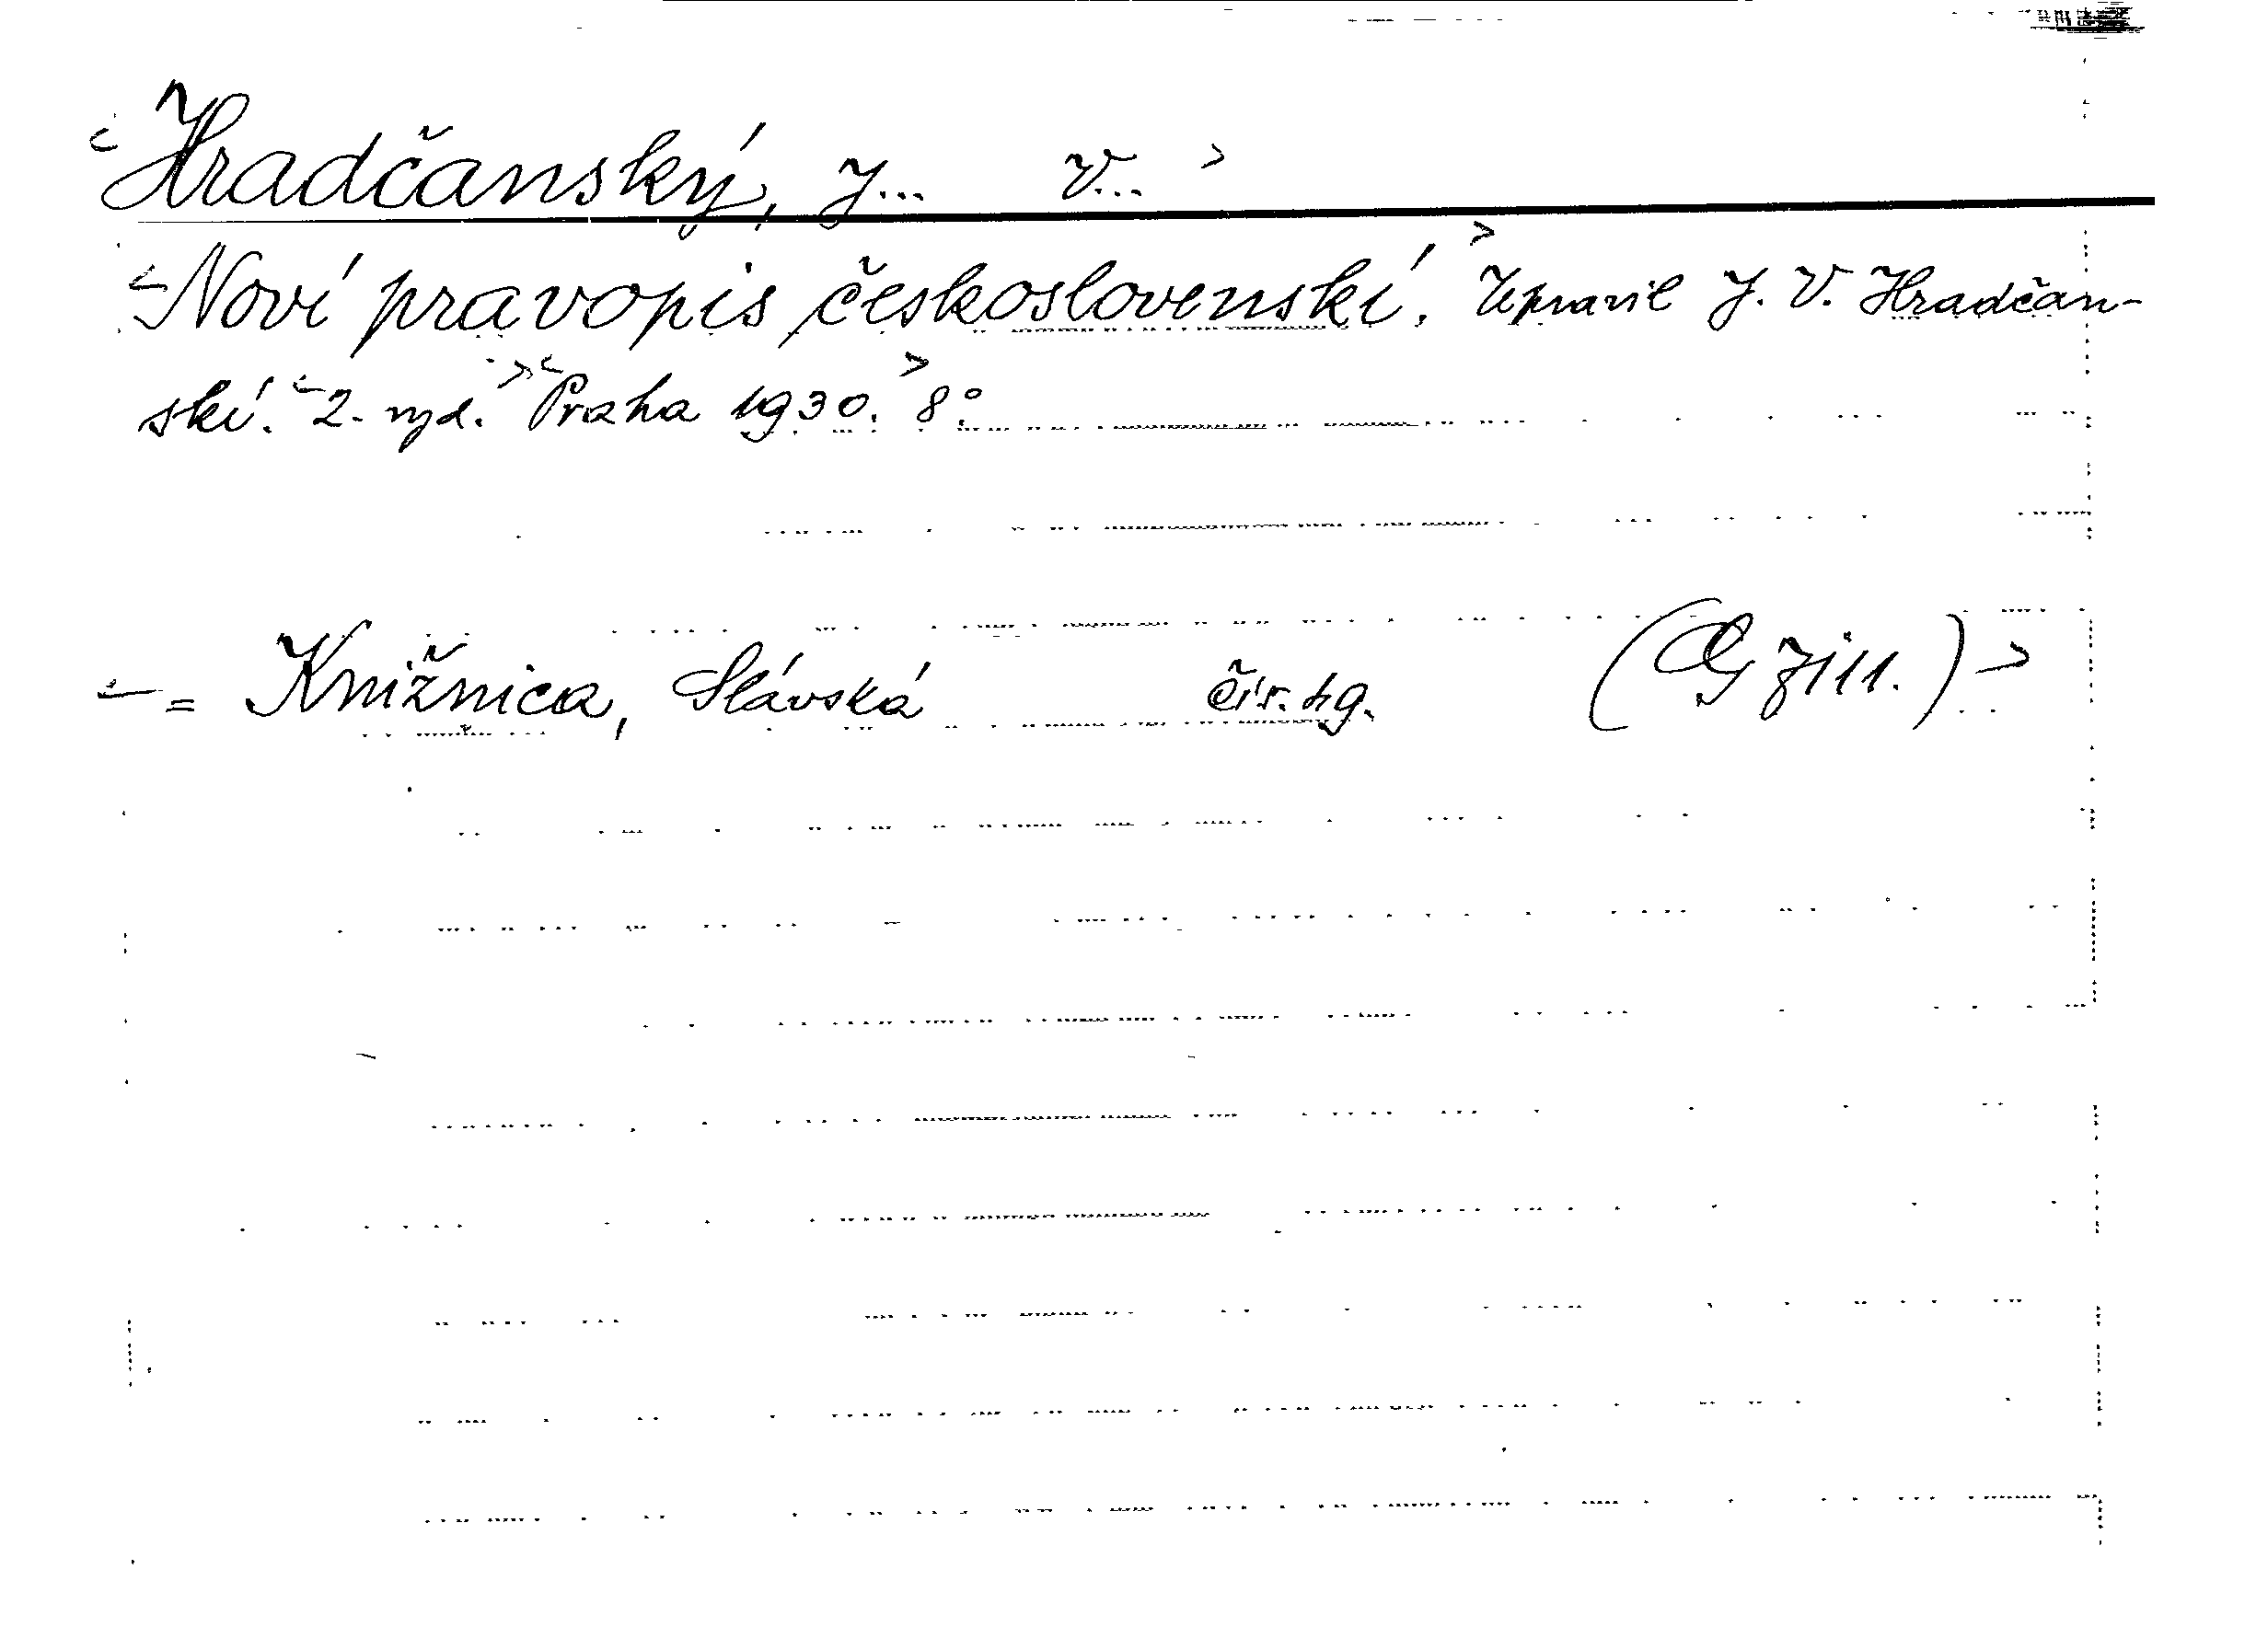 <Hradčanský, J... V...>
<Noví pravopis československí.> Upravil J. V. Hradčan-
skí. <2. vyd.> <Praha 1930.> 8°.
<= Knižnica, Slávská čís. 19.